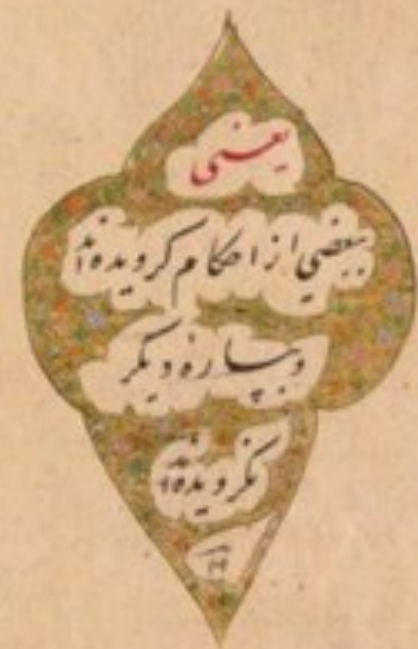 یعنی
ببعضی از احکام کرویده‌اند
و بپاره دیکر
نکرویده‌اند